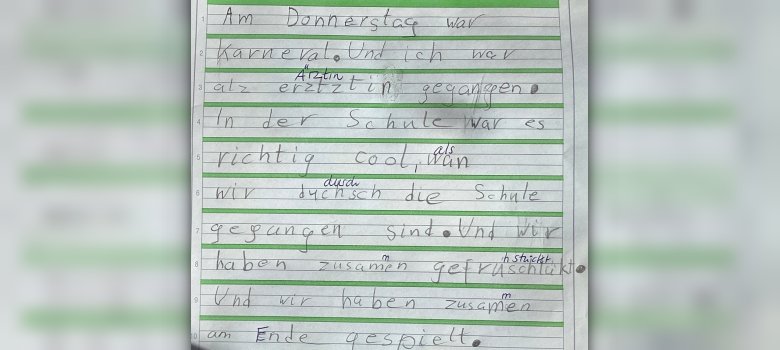 1 Am Donnerstag war
2 Karneval. Und ich war
Ärztin
3 alz erztztin gegangen.
4 In der Schule war es
als
5 richtig cool, wan
durch
6 wir duchsch die Schule
7 gegangen sind. Und wir
m hstückt
8 haben zusamen gefruschtukt.
m
9 Und wir haben zusamen
10 am Ende gespielt.